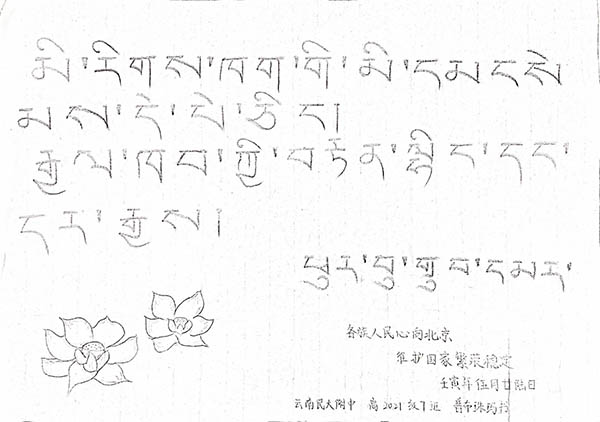 མི་རིགས་ཁག་གི་མི་དམངསེ
མས་དེ་པེ་ཅིང།
རྒྱལ་ཁབ་ཀྱི་བརྟན་ལྷིང་དང་
དར་རྒྱས།
ཕུར་བུ་
各族人民心向北京
维护国家繁荣稳定
壬寅年伍月廿陆日
云南民大附中 高2021级7班 普布珠玛书